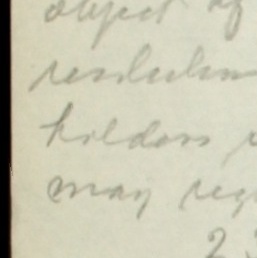 object of
resolution
holders
may
2